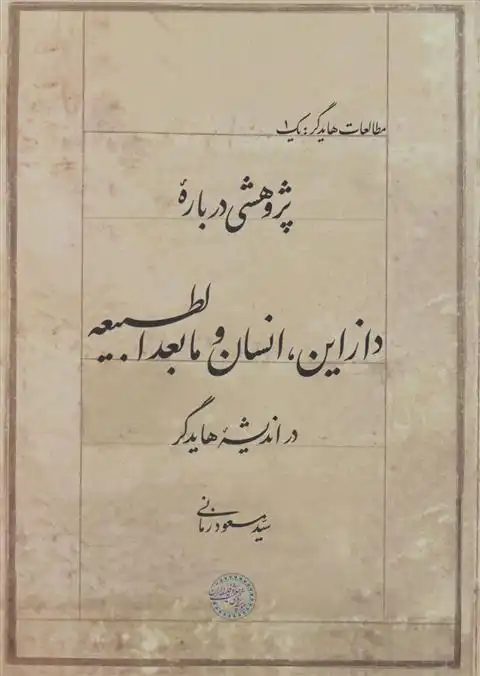 مطالعات هایدگر: یک ۱
پژوهشی دربارهٔ
دازاین، انسان و مابعدالطبیعه
در اندیشهٔ هایدگر
سید مسعود زمانی